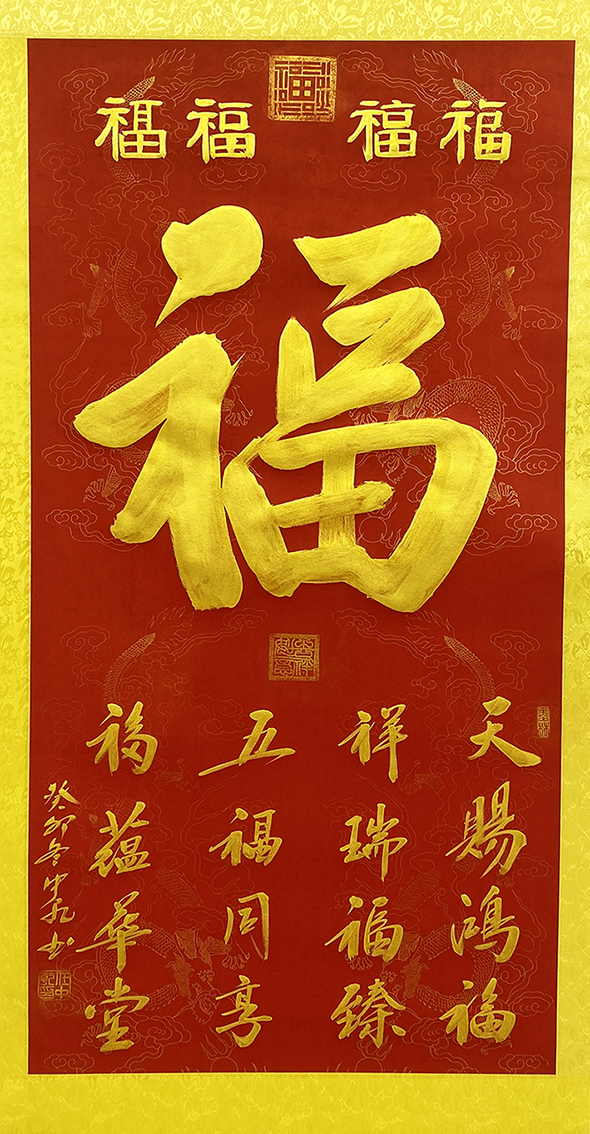 福福福福
福
天賜鴻福
祥瑞福臻
五福同享
福蕴華堂
癸卯冬中孔书